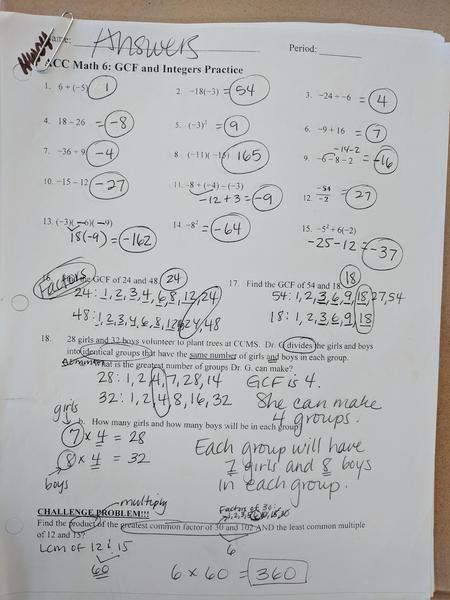 Name: Answers Period:
ACC Math 6: GCF and Integers Practice
1. 6 + (−5) 1 2. −18(−3) = 54 3. −24 ÷ −6 = 4
4. 18 − 26 = −8 5. (−3)² = 9 6. −9 + 16 = 7
7. −36 ÷ 9 = −4 8. (−11)(−15) 165 9. −6 − 8 − 2 −14 − 2 = −16
10. −15 − 12 = −27 11. −8 + (−4) − (−3) −12 + 3 = −9 12. −54/−2 = 27
13. (−3)(−6)(−9) 18(−9) = −162 14. −8² = −64 15. −5² + 6(−2) −25 − 12 = −37
16. Factors the GCF of 24 and 48. 24 17. Find the GCF of 54 and 18. 18
24: 1, 2, 3, 4, 6, 8, 12, 24 54: 1, 2, 3, 6, 9, 18, 27, 54
48: 1, 2, 3, 4, 6, 8, 12, 24, 48 18: 1, 2, 3, 6, 9, 18
18. 28 girls and 32 boys volunteer to plant trees at CCMS. Dr. G divides the girls and boys
into identical groups that have the same number of girls and boys in each group.
What is the greatest number of groups Dr. G. can make?
28: 1, 2, 4, 7, 28, 14 GCF is 4.
32: 1, 2, 4, 8, 16, 32 She can make
4 groups.
girls
b. How many girls and how many boys will be in each group
7 × 4 = 28 Each group will have
8 × 4 = 32 7 girls and 8 boys
boys in each group.
multiply Factors of 30:
CHALLENGE PROBLEM!!!
Find the product of the greatest common factor of 30 and 102 AND the least common multiple
of 12 and 15?
LCM of 12 & 15 6
60 6 × 60 = 360